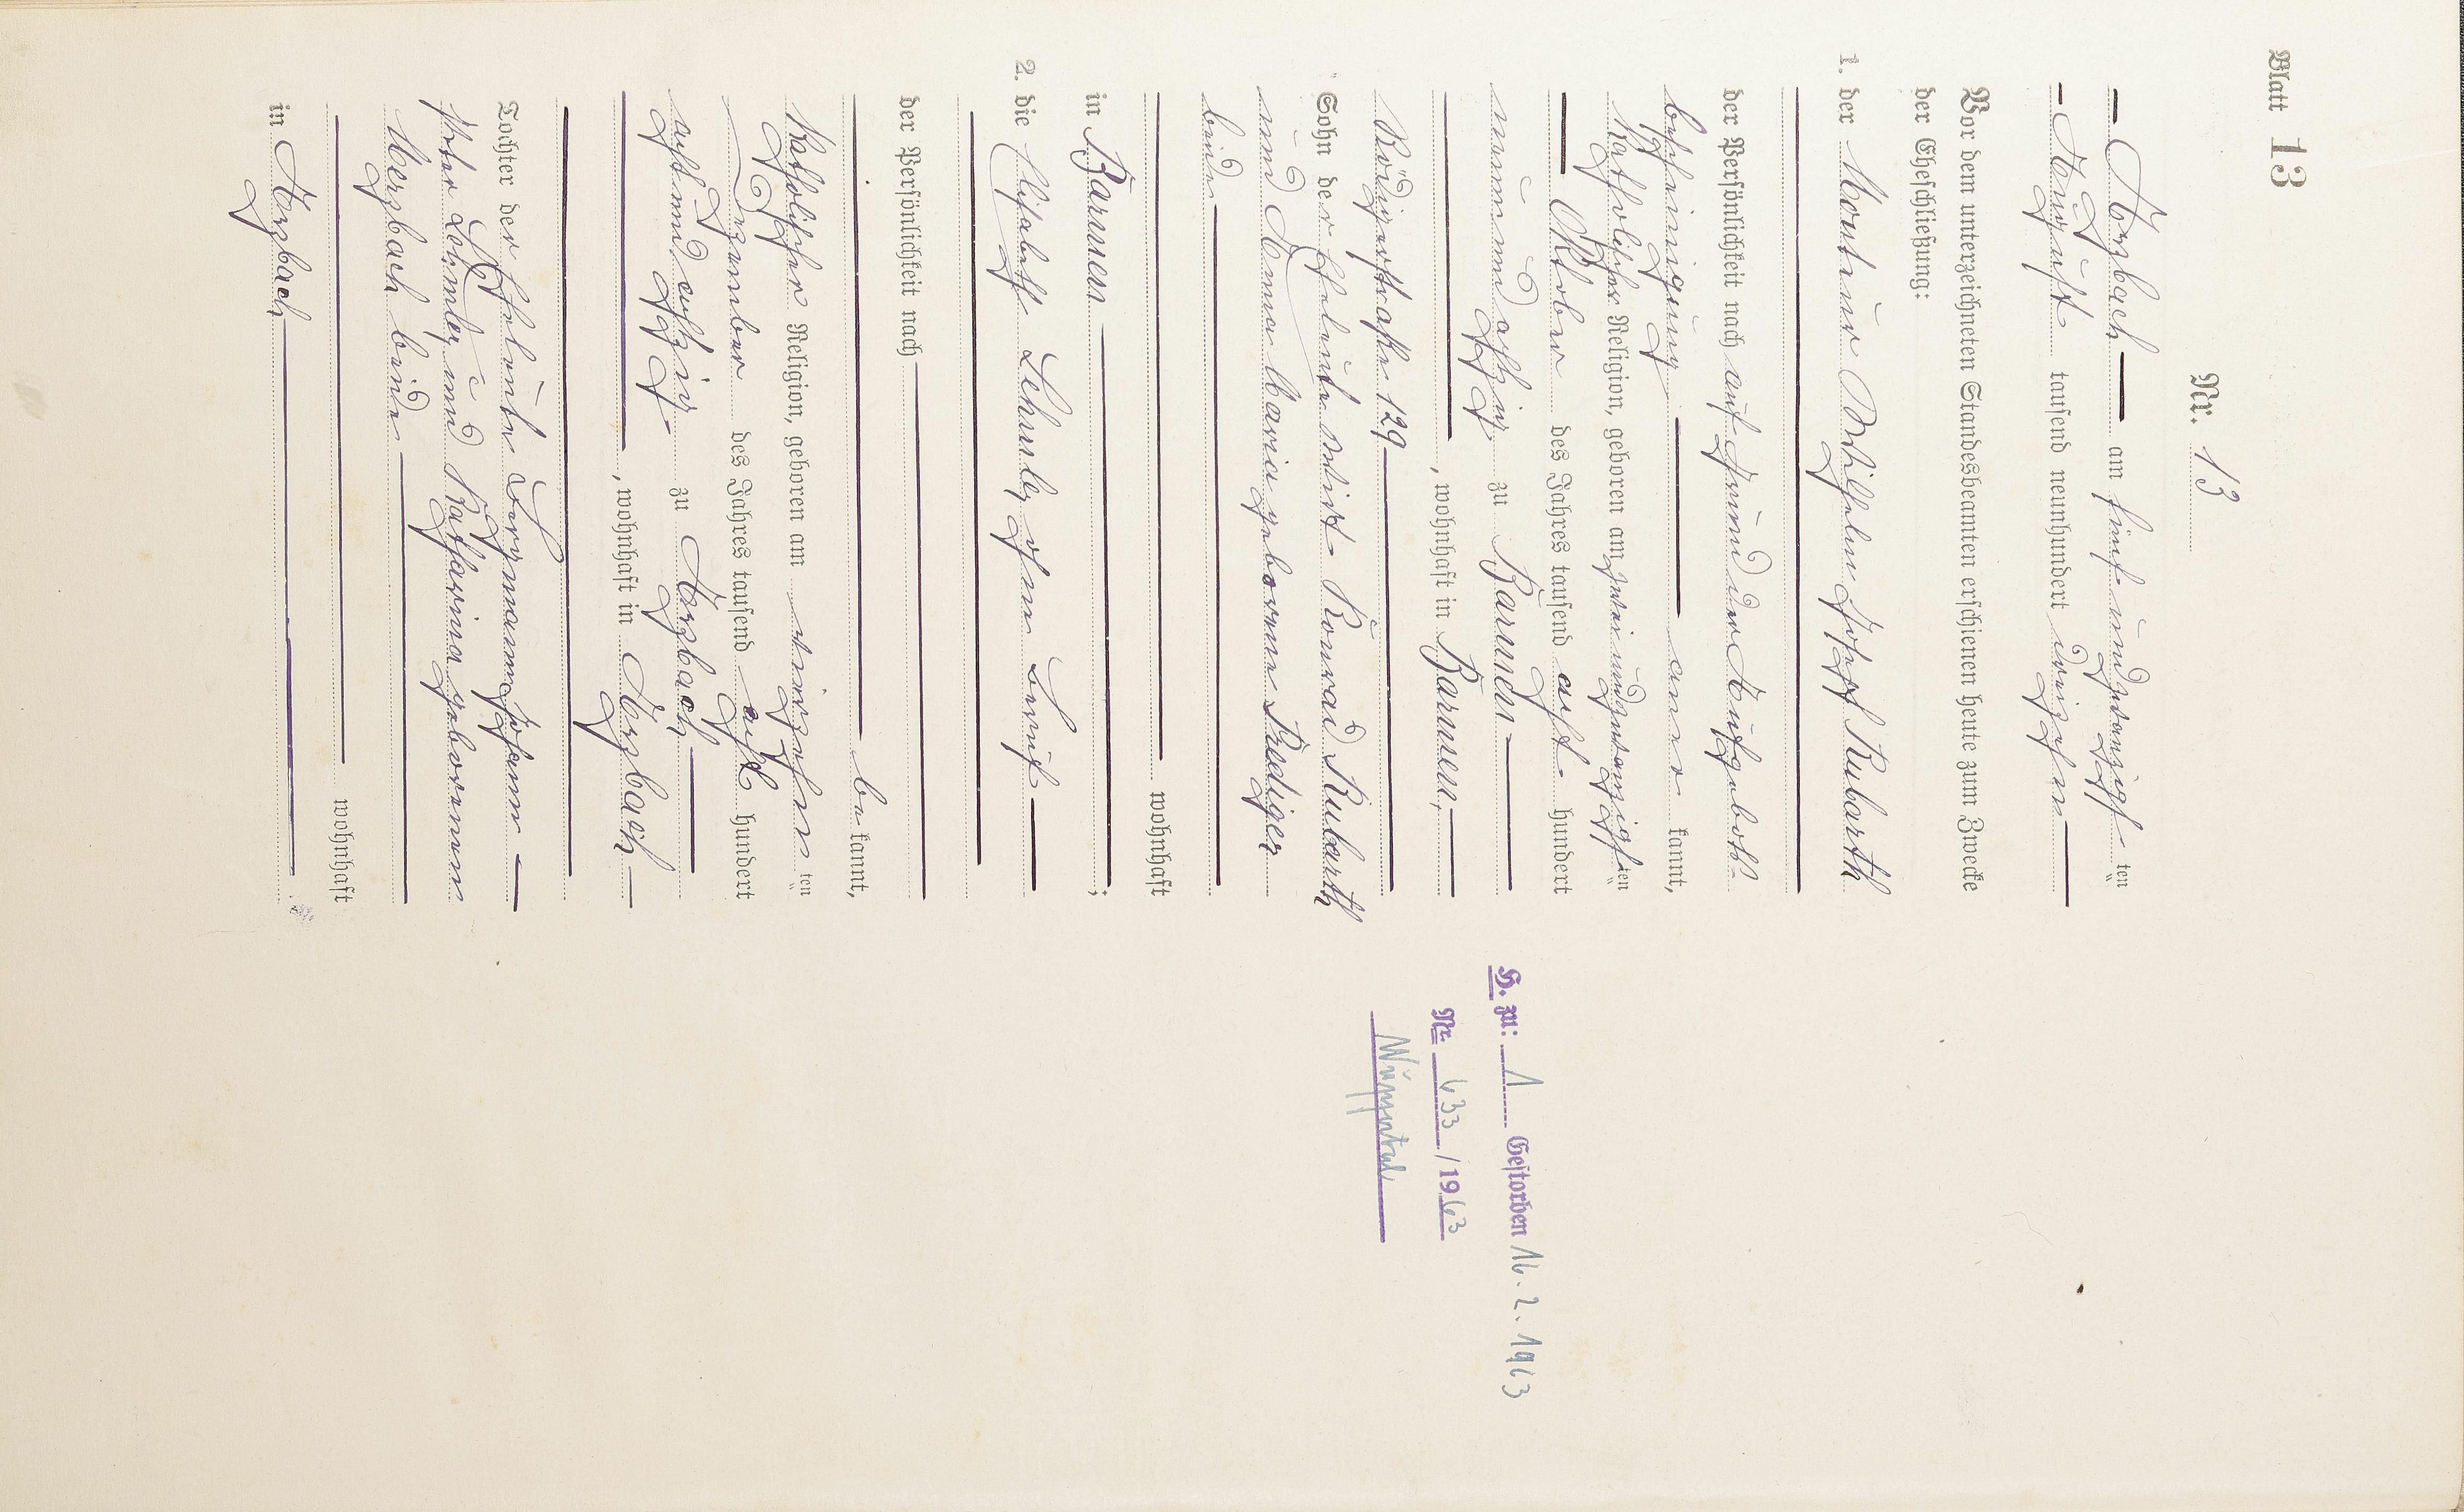 Blatt 13
Nr. 13
Arzbach am fünf und zwanzigsten
August tausend neunhundert dreizehn
Vor dem unterzeichneten Standesbeamten erschienen heute zum Zwecke
der Eheschließung:
1. der Monteur Wilhelm Josef Kubarth
der Persönlichkeit nach auf Grund der Aufgebots-
bescheinigung aner kannt,
Katholischer Religion, geboren am zwei und zwanzigsten
Oktober des Jahres tausend acht hundert
neunundachtzig zu Barmen
, wohnhaft in Barmen,
Rödigerstraße 129
Sohn der Eheleute Wirt Konrad Kubarth
und Anna Maria geborene Prediger
beide
wohnhaft
in Barmen ;
2. die Elisabeth Lehmler, ohne Beruf
der Persönlichkeit nach
be kannt,
Katholischer Religion, geboren am vierzehnten
Dezember des Jahres tausend acht hundert
achtundachtzig zu Arzbach
, wohnhaft in Arzbach
Tochter der Eheleute Bergmann Johann
Peter Lehmler und Katharina geborenen
Merzbach beide
wohnhaft
in Arzbach
H. zu: 1 Gestorben 16.2.1963
Nr. 633/1963
Wuppertal